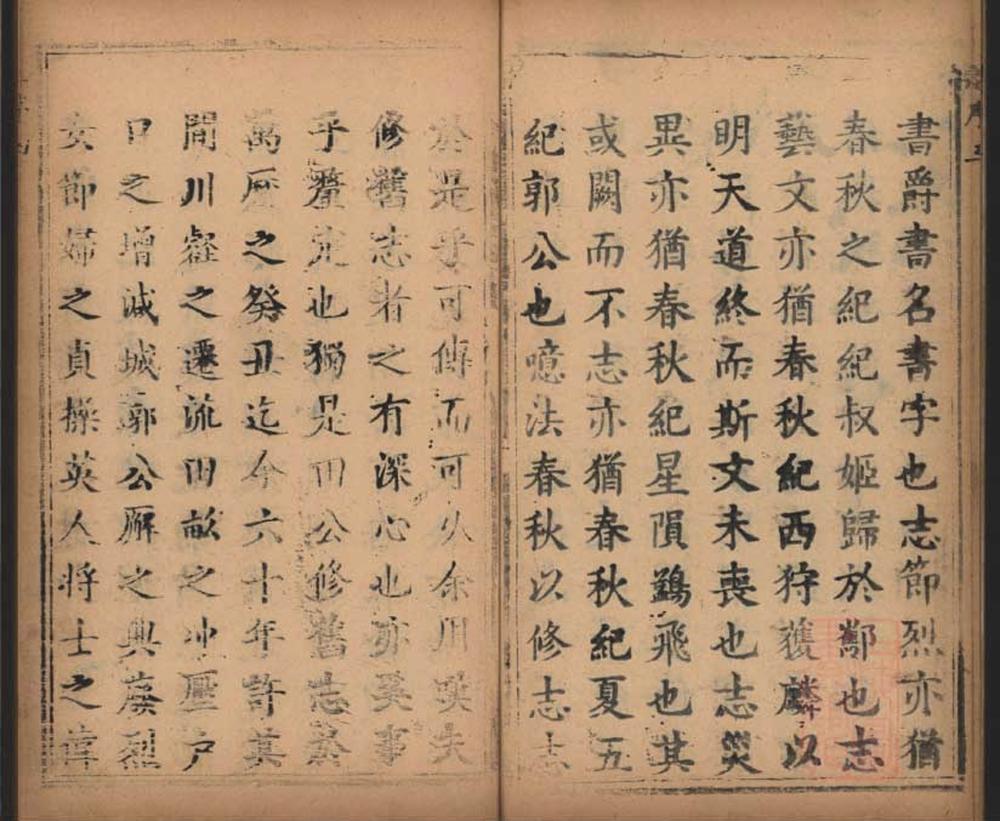 書爵書名書字也志節烈亦猶
春秋之紀紀叔姬歸於酅也志
藝文亦猶春秋紀西狩獲麟以
明天道終而斯文未喪也志災
異亦猶春秋紀星隕鷁飛也其
或闕而不志亦猶春秋紀夏五
紀郭公也噫法春秋以修志志
於是乎可傳而可久余用嘆夫
修舊志者之有深心也亦奚事
乎釐定也獨是田公修舊志於
萬厤之癸丑迄今六十年許其
間川谿之遷流田畝之冲壓户
口之增減城郭公廨之興廢烈
女節婦之貞操英人將士之偉